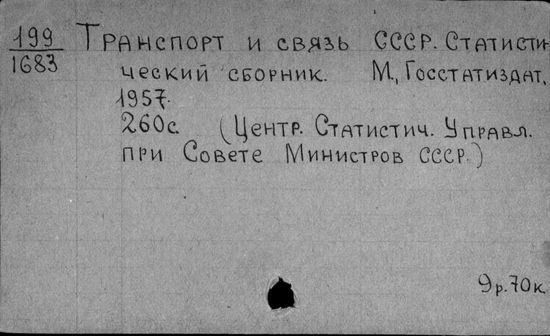 199 Транспорт и связь СССР. Статисти-
1683 ческий сборник. М., Госстатиздат,
1957.
260с. (Центр. Статистич. Управл.
при Совете Министров СССР.)
9р.70к.